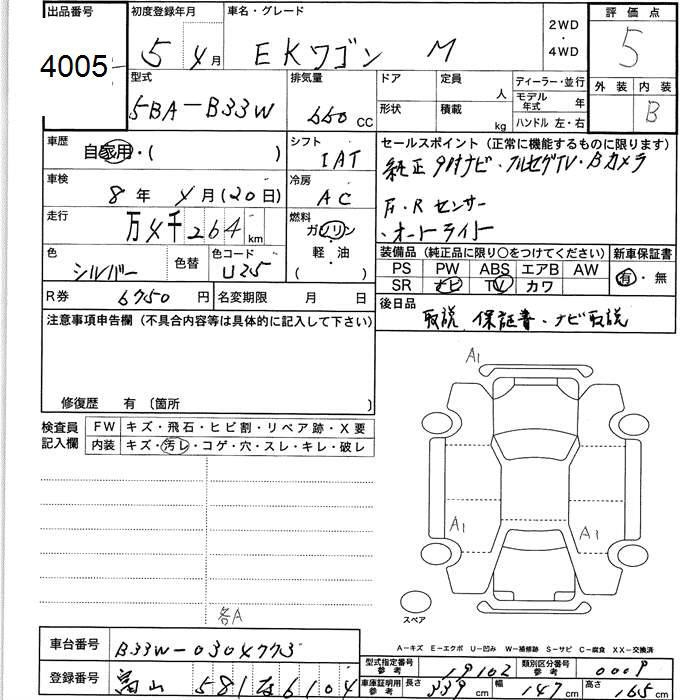 出品番号
4005
初度登録年月
5年 4月
車名・グレード
EKワゴン M
2WD
・
4WD
評価点
5
外装 内装
B
型式
5BA-B33W
排気量
660 CC
ドア
形状
定員
人
積載
kg
ディーラー・並行
モデル年式 年
ハンドル 左・右
車歴
自家用・( )
シフト
IAT
車検
8年 4月(20日)
冷房
AC
走行
万4千264km
燃料
ガソリン
軽・油
( )
色
シルバー
色替
色コード
U25
R券 6750円
名変期限 月 日
セールスポイント(正常に機能するものに限ります)
純正9吋ナビ・フルセグTV・Bカメラ
F・Rセンサー
・オートライト
装備品(純正品に限り○をつけてください)
PS PW ABS エアB AW
SR ナビ TV カワ
新車保証書
有・無
後日品
取説 保証書・ナビ取説
注意事項申告欄(不具合内容等は具体的に記入して下さい)
修復歴 有(箇所 )
検査員
記入欄
FW キズ・飛石・ヒビ割・リペア跡・X要
内装 キズ・汚レ・コゲ・穴・スレ・キレ・破レ
各A
A1
A1
A1
スペア
A-キズ E-エクボ U-凹み W-補修跡 S-サビ C-腐食 XX-交換済
車台番号 B33W-0304773
登録番号 富山 581 6104
型式指定番号 参考 19102 類別区分番号 参考 0009
車庫証明用 参考 長さ 339cm 幅 147cm 高さ 165cm